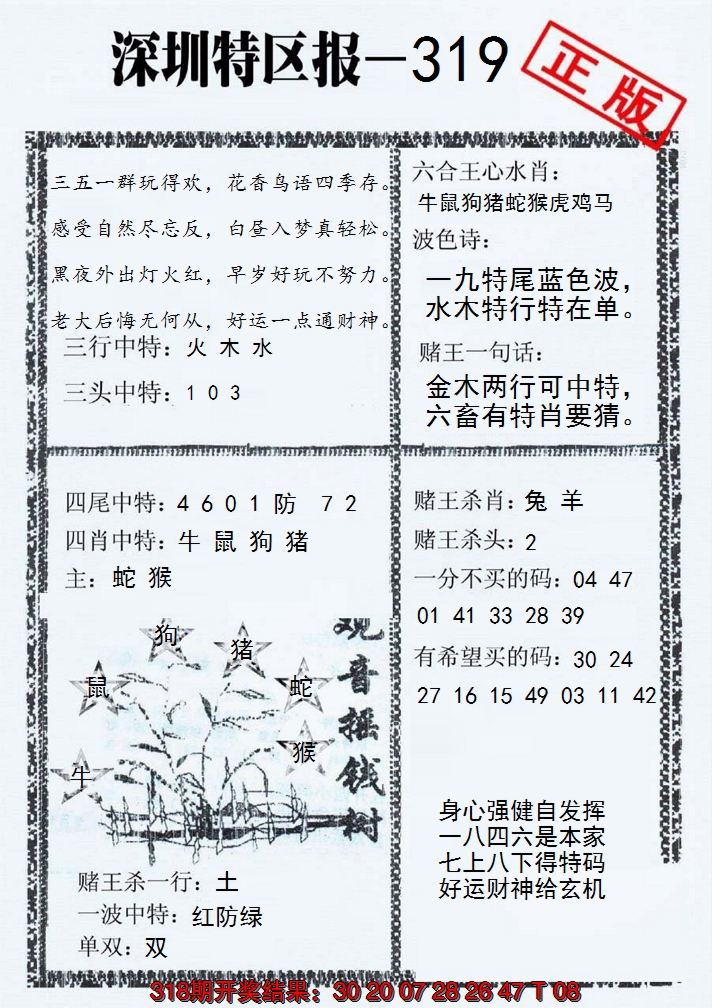 深圳特区报—319
正版
三五一群玩得欢，花香鸟语四季存。
感受自然尽忘反，白昼入梦真轻松。
黑夜外出灯火红，早岁好玩不努力。
老大后悔无何从，好运一点通财神。
三行中特：火 木 水
三头中特：1 0 3
六合王心水肖：
牛鼠狗猪蛇猴虎鸡马
波色诗：
一九特尾蓝色波，
水木特行特在单。
赌王一句话：
金木两行可中特，
六畜有特肖要猜。
四尾中特：4 6 0 1 防 7 2
四肖中特：牛 鼠 狗 猪
主：蛇 猴
狗
猪
鼠
蛇
猴
牛
观音摇钱树
赌王杀一行：土
一波中特：红防绿
单双：双
赌王杀肖：兔 羊
赌王杀头：2
一分不买的码：04 47
01 41 33 28 39
有希望买的码：30 24
27 16 15 49 03 11 42
身心强健自发挥
一八四六是本家
七上八下得特码
好运财神给玄机
318期开奖结果：30 20 07 28 26 47 T 08